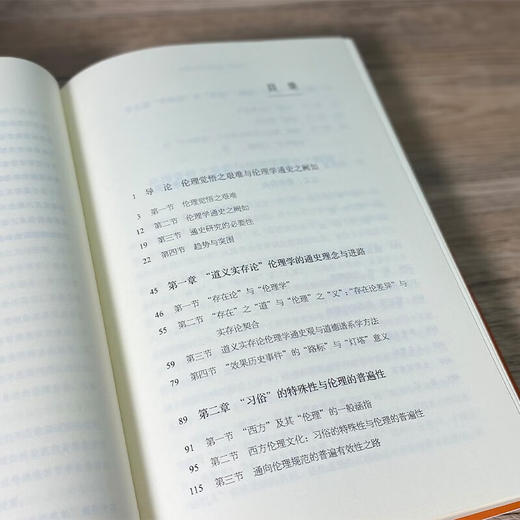 目 录
1 导 论 伦理觉悟之艰难与伦理学通史之阙如
3 第一节 伦理觉悟之艰难
12 第二节 伦理学通史之阙如
19 第三节 通史研究的必要性
22 第四节 趋势与突围
45 第一章 “道义实存论”伦理学的通史理念与进路
46 第一节 “存在论”与“伦理学”
55 第二节 “存在”之“道”与“伦理”之“义”：“存在论差异”与
实存论契合
59 第三节 道义实存论伦理学通史观与道德谱系学方法
79 第四节 “效果历史事件”的“路标”与“灯塔”意义
89 第二章 “习俗”的特殊性与伦理的普遍性
91 第一节 “西方”及其“伦理”的一般涵指
95 第二节 西方伦理文化：习俗的特殊性与伦理的普遍性
115 第三节 通向伦理规范的普遍有效性之路